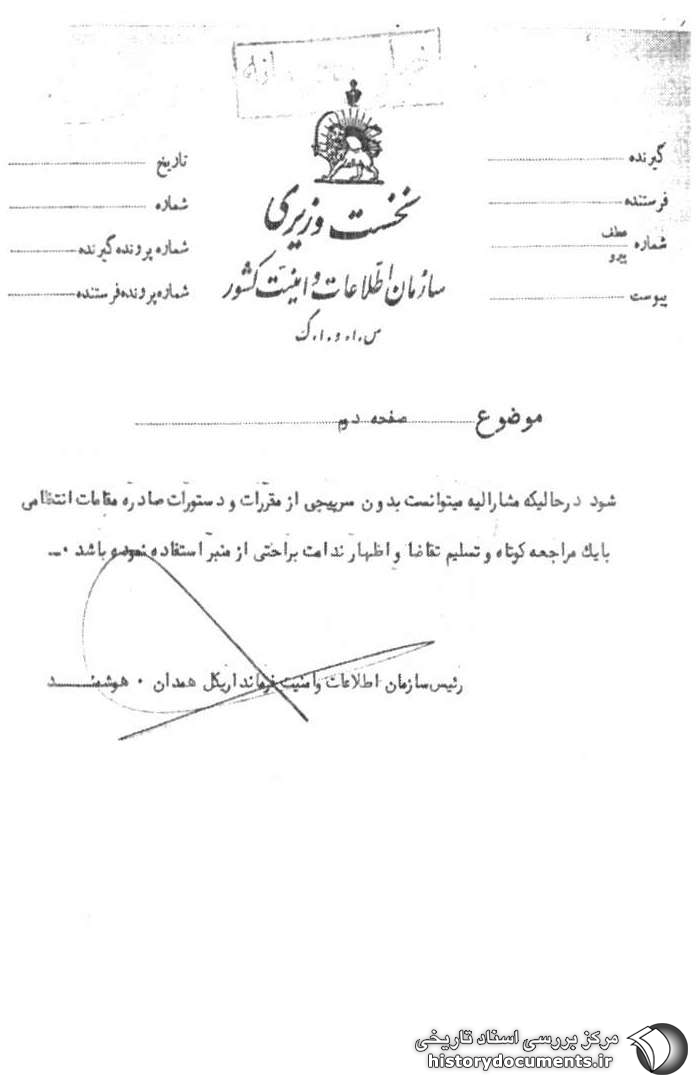 نخست وزیری
سازمان اطلاعات و امنیت کشور
س.ا.و.ا.ک
گیرنده
فرستنده
شماره عطف پیرو
پیوست
تاریخ
شماره
شماره پرونده گیرنده
شماره پرونده فرستنده
موضوع صفحه دوم
شود درحالیکه مشارالیه میتوانست بدون سرپیچی از مقررات و دستورات صادره مقامات انتظامی
بایك مراجعه کوتاه و تسلیم تقاضا و اظهار ندامت براحتی از منبر استفاده نموده باشد ۰ـ
رئیس سازمان اطلاعات وامنیت فرمانداریکل همدان ۰ هوشمنـــد
مرکز بررسی اسناد تاریخی
historydocuments.ir